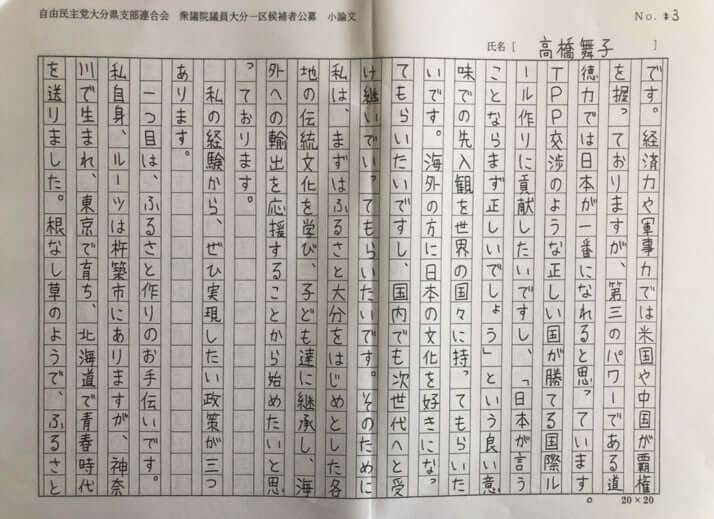 自由民主党大分県支部連合会 衆議院議員大分一区候補者公募 小論文
No. #3
氏名[ 高橋舞子 ]
です。経済力や軍事力では米国や中国が覇権
を握っておりますが、第三のパワーである道
徳力では日本が一番になれると思っています。
TPP交渉のような正しい国が勝てる国際ル
ール作りに貢献したいですし、「日本が言う
ことならまず正しいでしょう」という良い意
味での先入観を世界の国々に持ってもらいた
いです。海外の方に日本の文化を好きになっ
てもらいたいですし、国内でも次世代へと受
け継いでいってもらいたいです。そのために
私は、まずはふるさと大分をはじめとした各
地の伝統文化を学び、子ども達に継承し、海
外への輸出を応援することから始めたいと思
っております。
私の経験から、ぜひ実現したい政策が三つ
あります。
一つ目は、ふるさと作りのお手伝いです。
私自身、ルーツは杵築市にありますが、神奈
川で生まれ、東京で育ち、北海道で青春時代
を送りました。根なし草のようで、ふるさと
20×20